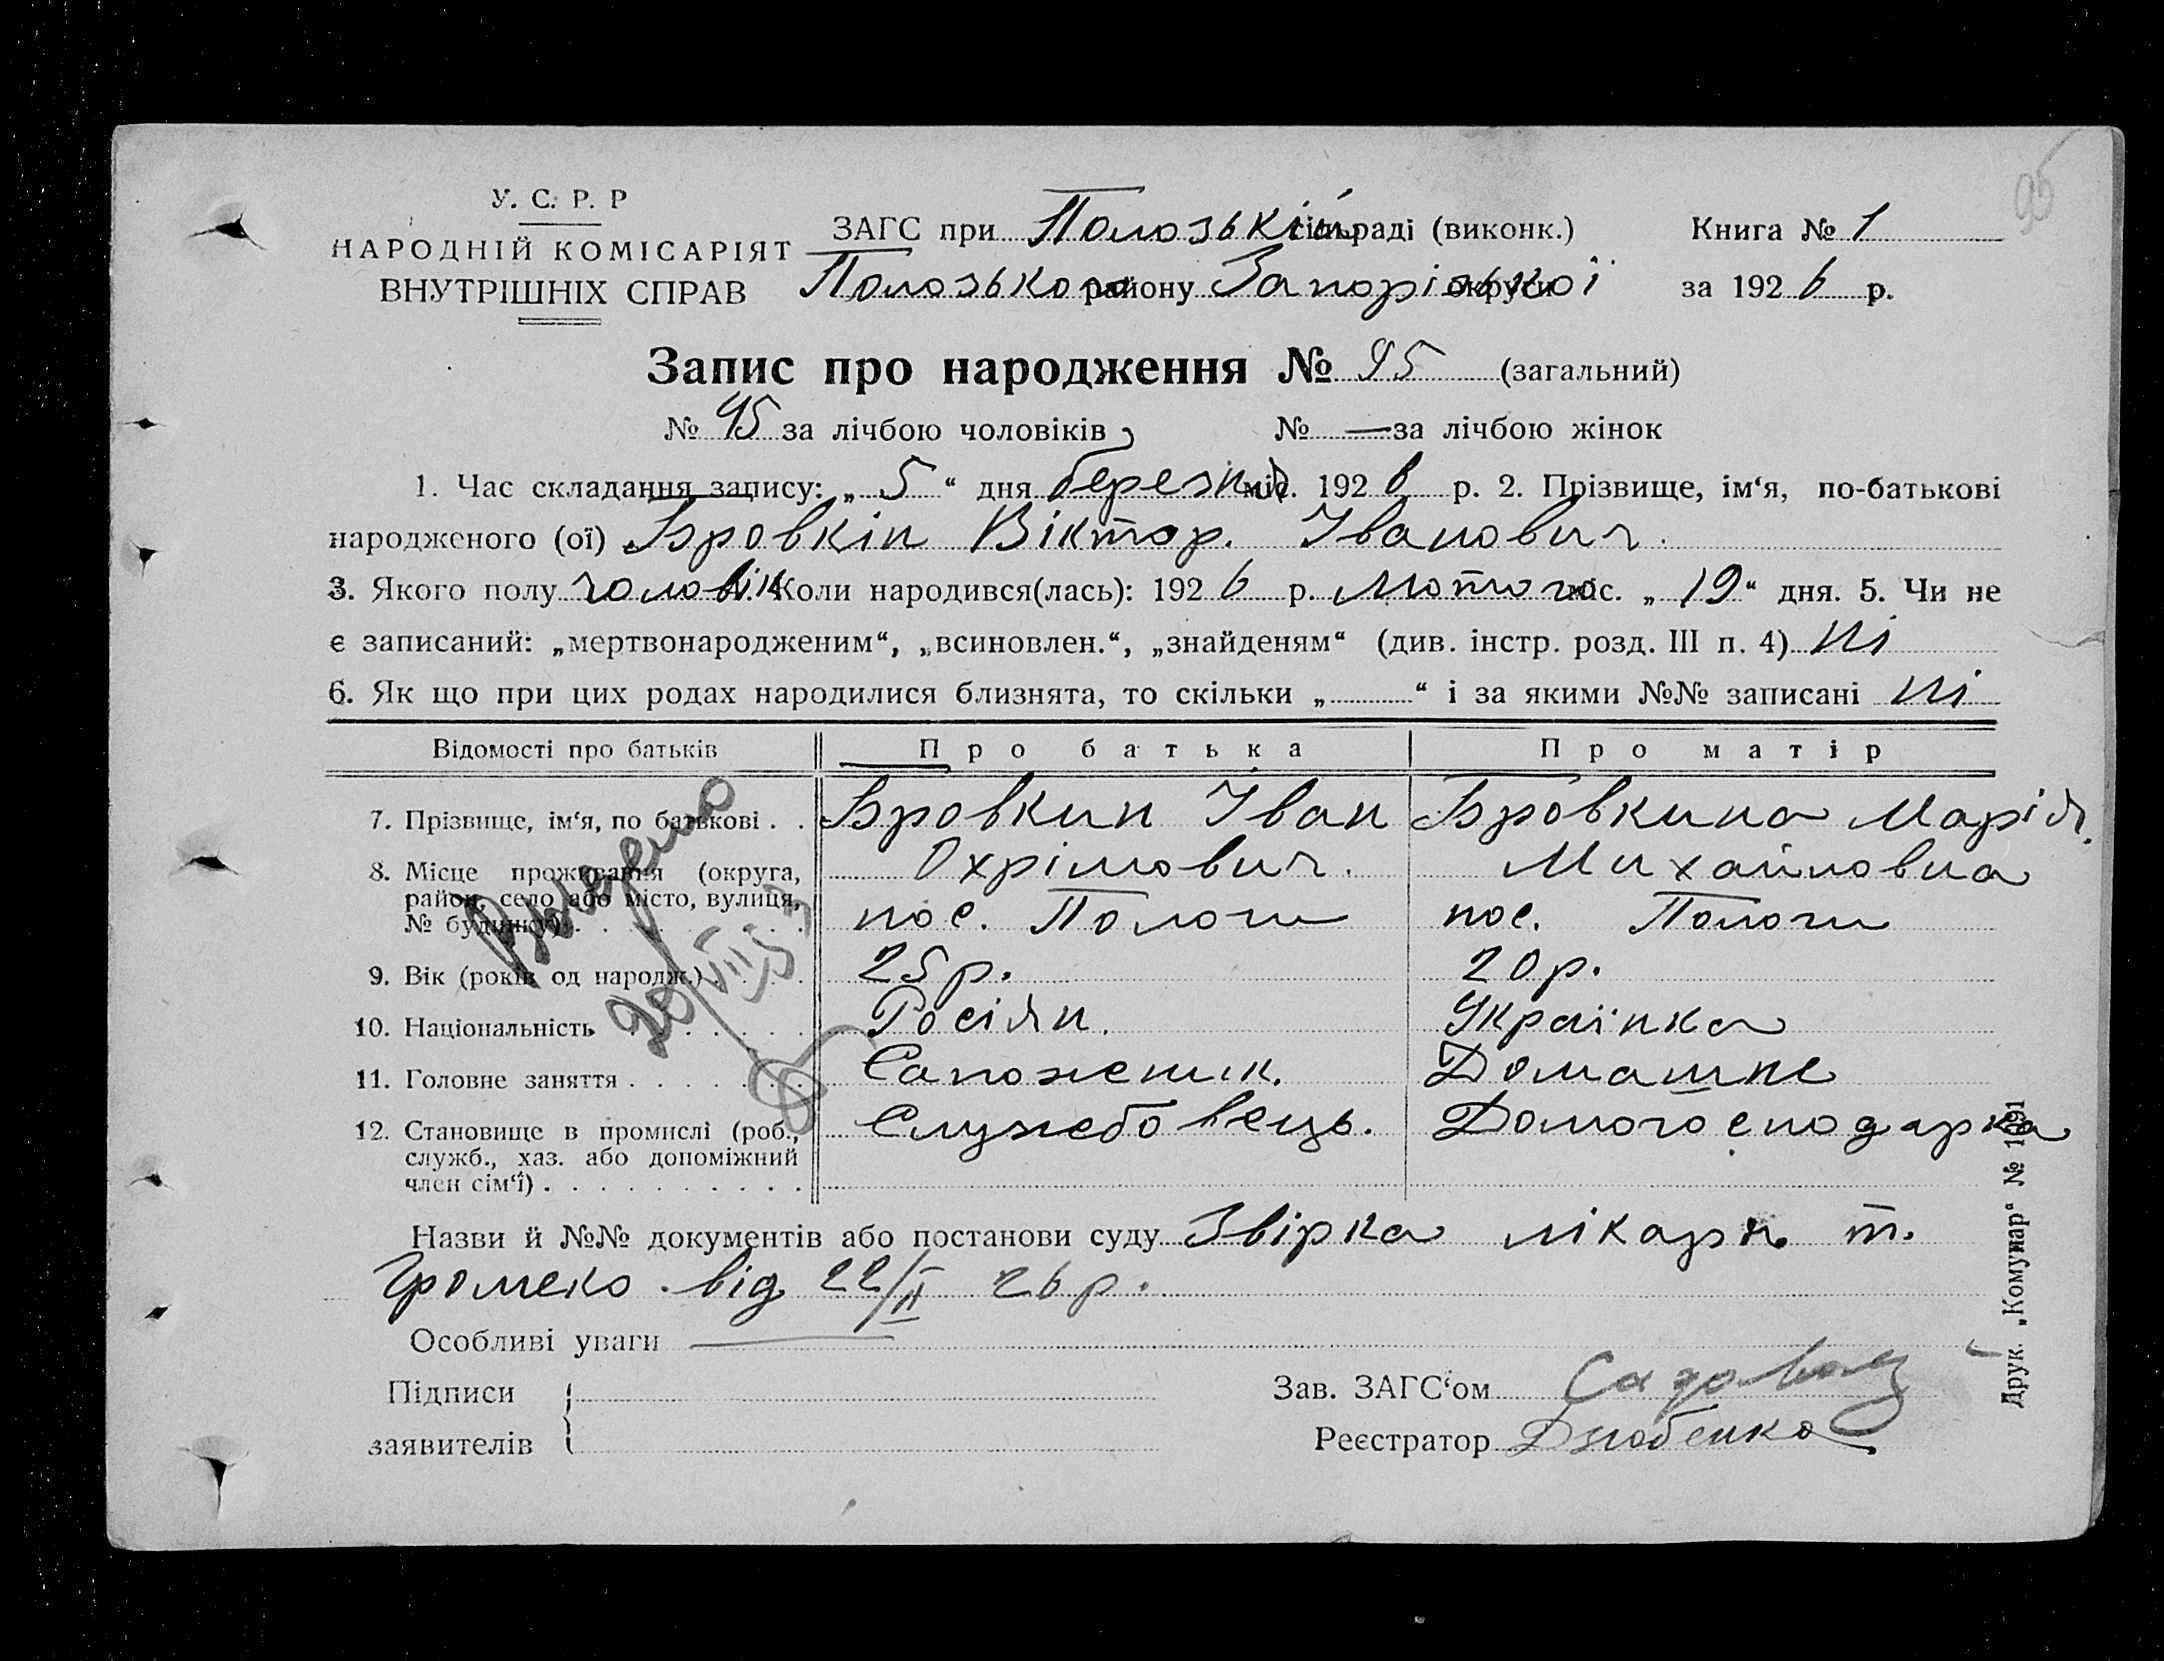 95
У. С. Р. Р
НАРОДНІЙ КОМІСАРІЯТ
ВНУТРІШНІХ СПРАВ
ЗАГС при Пологькій сільраді (виконк.)
Книга № 1
Пологького району Запорізької округи
за 1926 р.
Запис про народження № 95 (загальний)
№ 45 за лічбою чоловіків, № — за лічбою жінок
1. Час складання запису: „5“ дня березня міс. 1926 р. 2. Прізвище, ім‘я, по-батькові
народженого (ої) Бровкін Віктор. Іванович.
3. Якого полу чоловік 4. Коли народився(лась): 1926 р. Лютого міс. „19“ дня. 5. Чи не
є записаний: „мертвонародженим“, „всиновлен.“, „знайденям“ (див. інстр. розд. III п. 4) ні
6. Як що при цих родах народилися близнята, то скільки „ “ і за якими №№ записані ні
Відомості про батьків Про батька Про матір
7. Прізвище, ім‘я, по батькові . . Бровкин Іван Бровкина Марія.
8. Місце проживання (округа, Охрімович. Михайловна
район, село або місто, вулиця,
№ будинку) . . . пос. Пологи пос. Пологи
9. Вік (років од народж.) . . . 25 р. 20 р.
10. Національність . . . Росіян. Українка
11. Головне заняття . . . Сапожник. Домашнє
12. Становище в промислі (роб., Службовець. Домогосподарка
служб., хаз. або допоміжний
член сім‘ї) . . .
20/VIII 53
Назви й №№ документів або постанови суду Звірка лікаря т.
Громеко від 22/II 26 р.
Особливі уваги —
Підписи
заявителів
Зав. ЗАГС‘ом
Реєстратор Дзюбенко
Друк. „Комунар“ № 1091